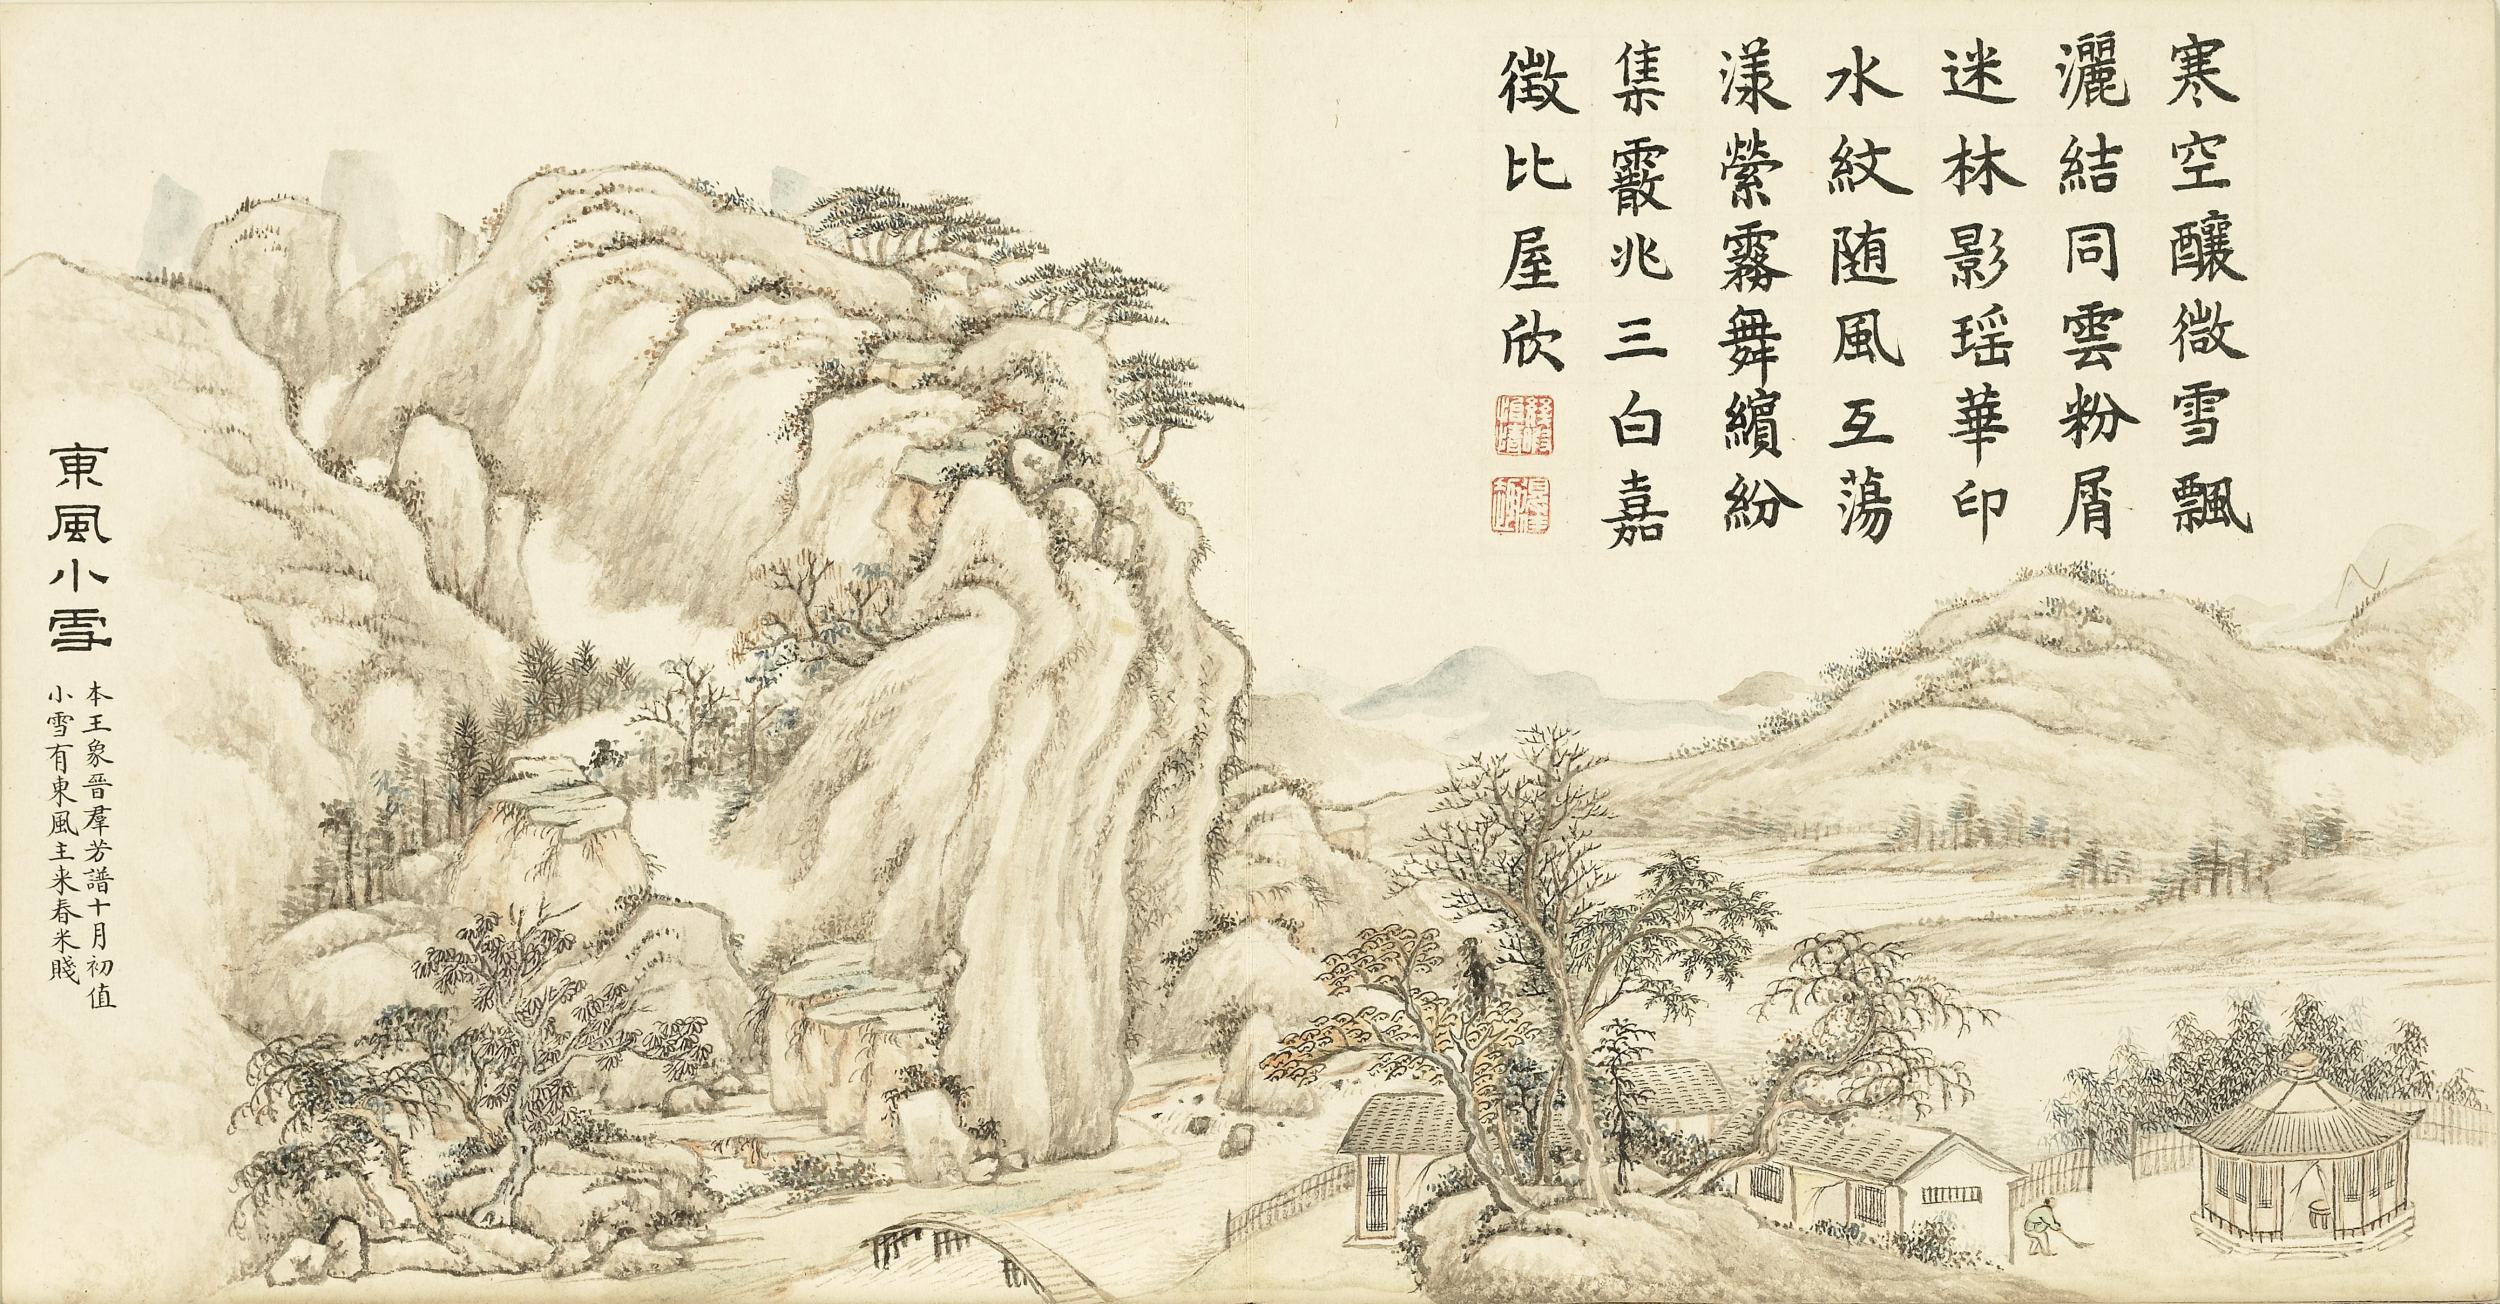 寒空釀微雪飄
灑結同雲粉屑
迷林影瑶華印
水紋随風互蕩
漾縈霧舞繽紛
集霰兆三白嘉
徴比屋欣
東風小雪
本王象晉羣芳譜十月初值
小雪有東風主来春米賤